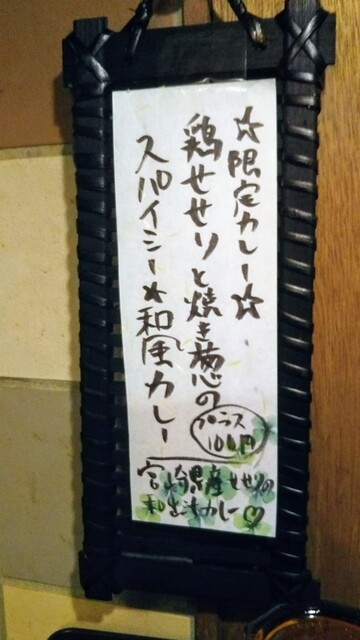 ☆限定カレー☆
鶏せせりと焼き葱の
スパイシー★和風カレー
プラス
100円
宮崎県産せせりの
和出汁カレー♡